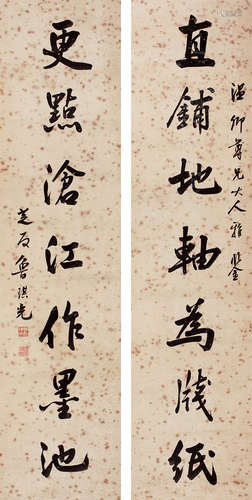 直鋪地軸為牋紙
溫卿尊兄大人雅鑒
更點滄江作墨池
芝友魯琪光